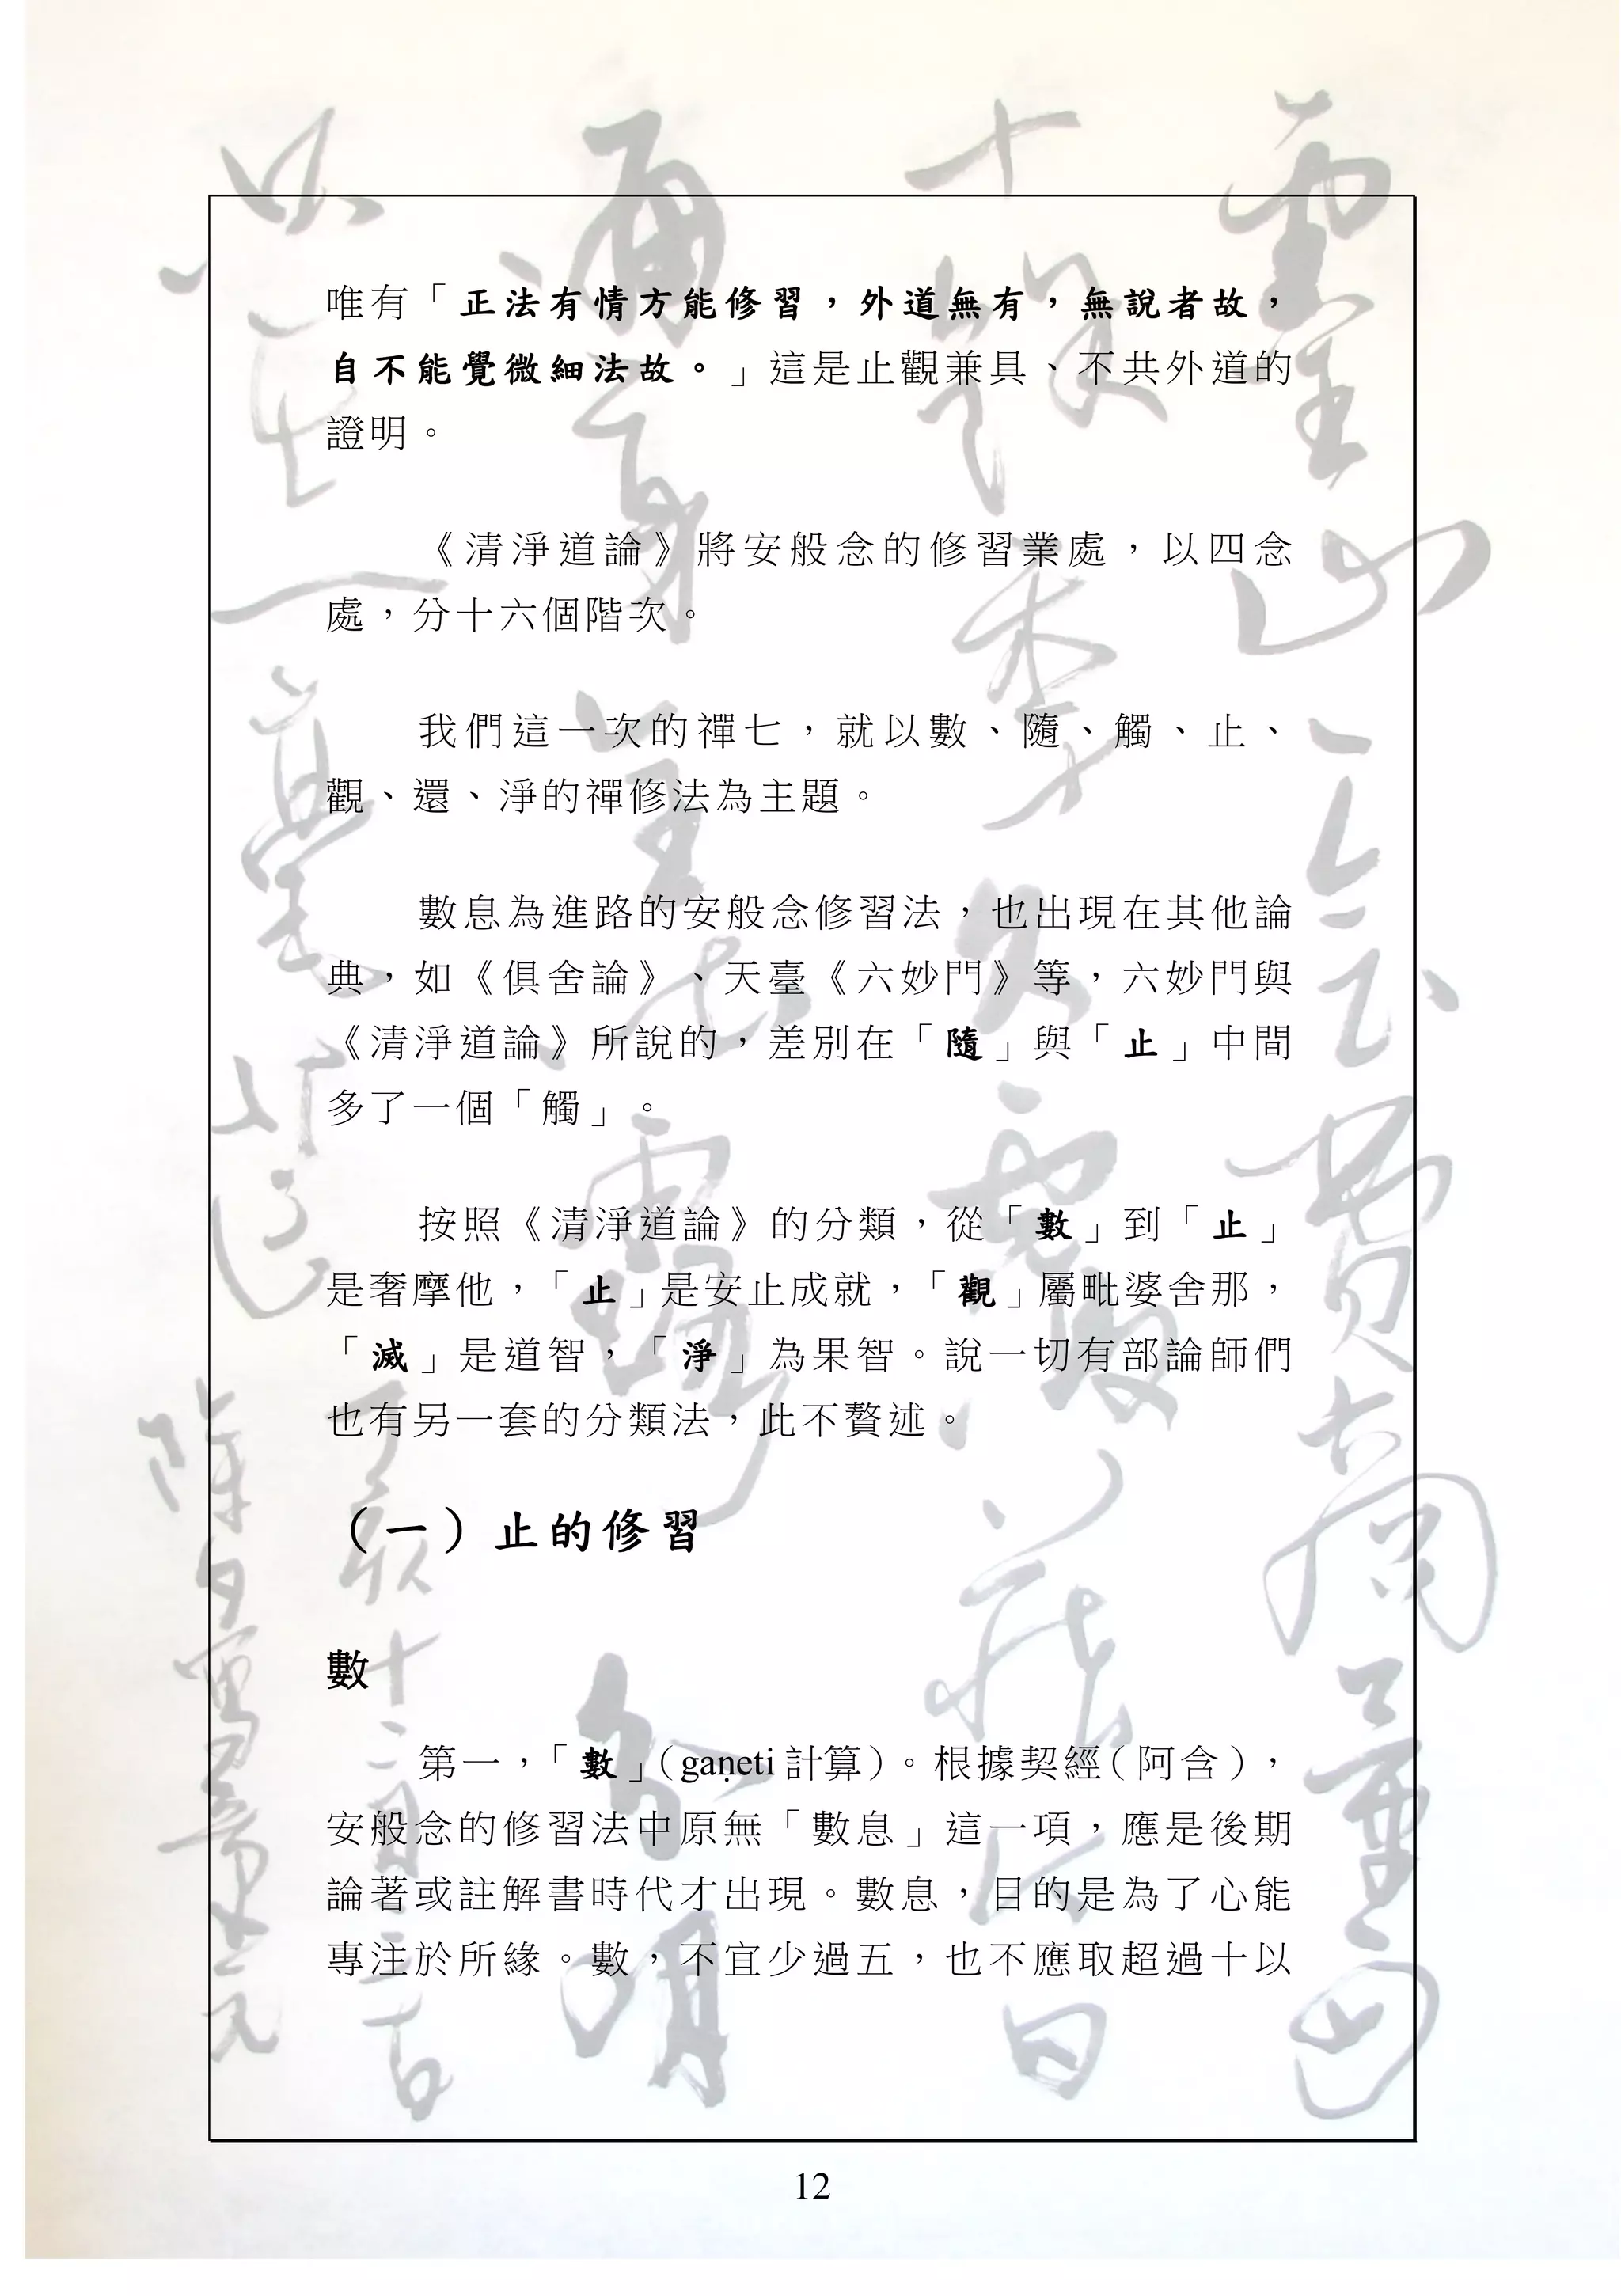 唯有「正法有情方能修習，外道無有，無說者故，
自不能覺微細法故。」這是止觀兼具、不共外道的
證明。
《清淨道論》將安般念的修習業處，以四念
處，分十六個階次。
我們這一次的禪七，就以數、隨、觸、止、
觀、還、淨的禪修法為主題。
數息為進路的安般念修習法，也出現在其他論
典，如《俱舍論》、天臺《六妙門》等，六妙門與
《清淨道論》所說的，差別在「隨」與「止」中間
多了一個「觸」。
按照《清淨道論》的分類，從「數」到「止」
是奢摩他，「止」是安止成就，「觀」屬毗婆舍那，
「滅」是道智，「淨」為果智。說一切有部論師們
也有另一套的分類法，此不贅述。
（一）止的修習
數
第一，「數」（gaṇeti 計算）。根據契經（阿含），
安般念的修習法中原無「數息」這一項，應是後期
論著或註解書時代才出現。數息，目的是為了心能
專注於所緣。數，不宜少過五，也不應取超過十以
12